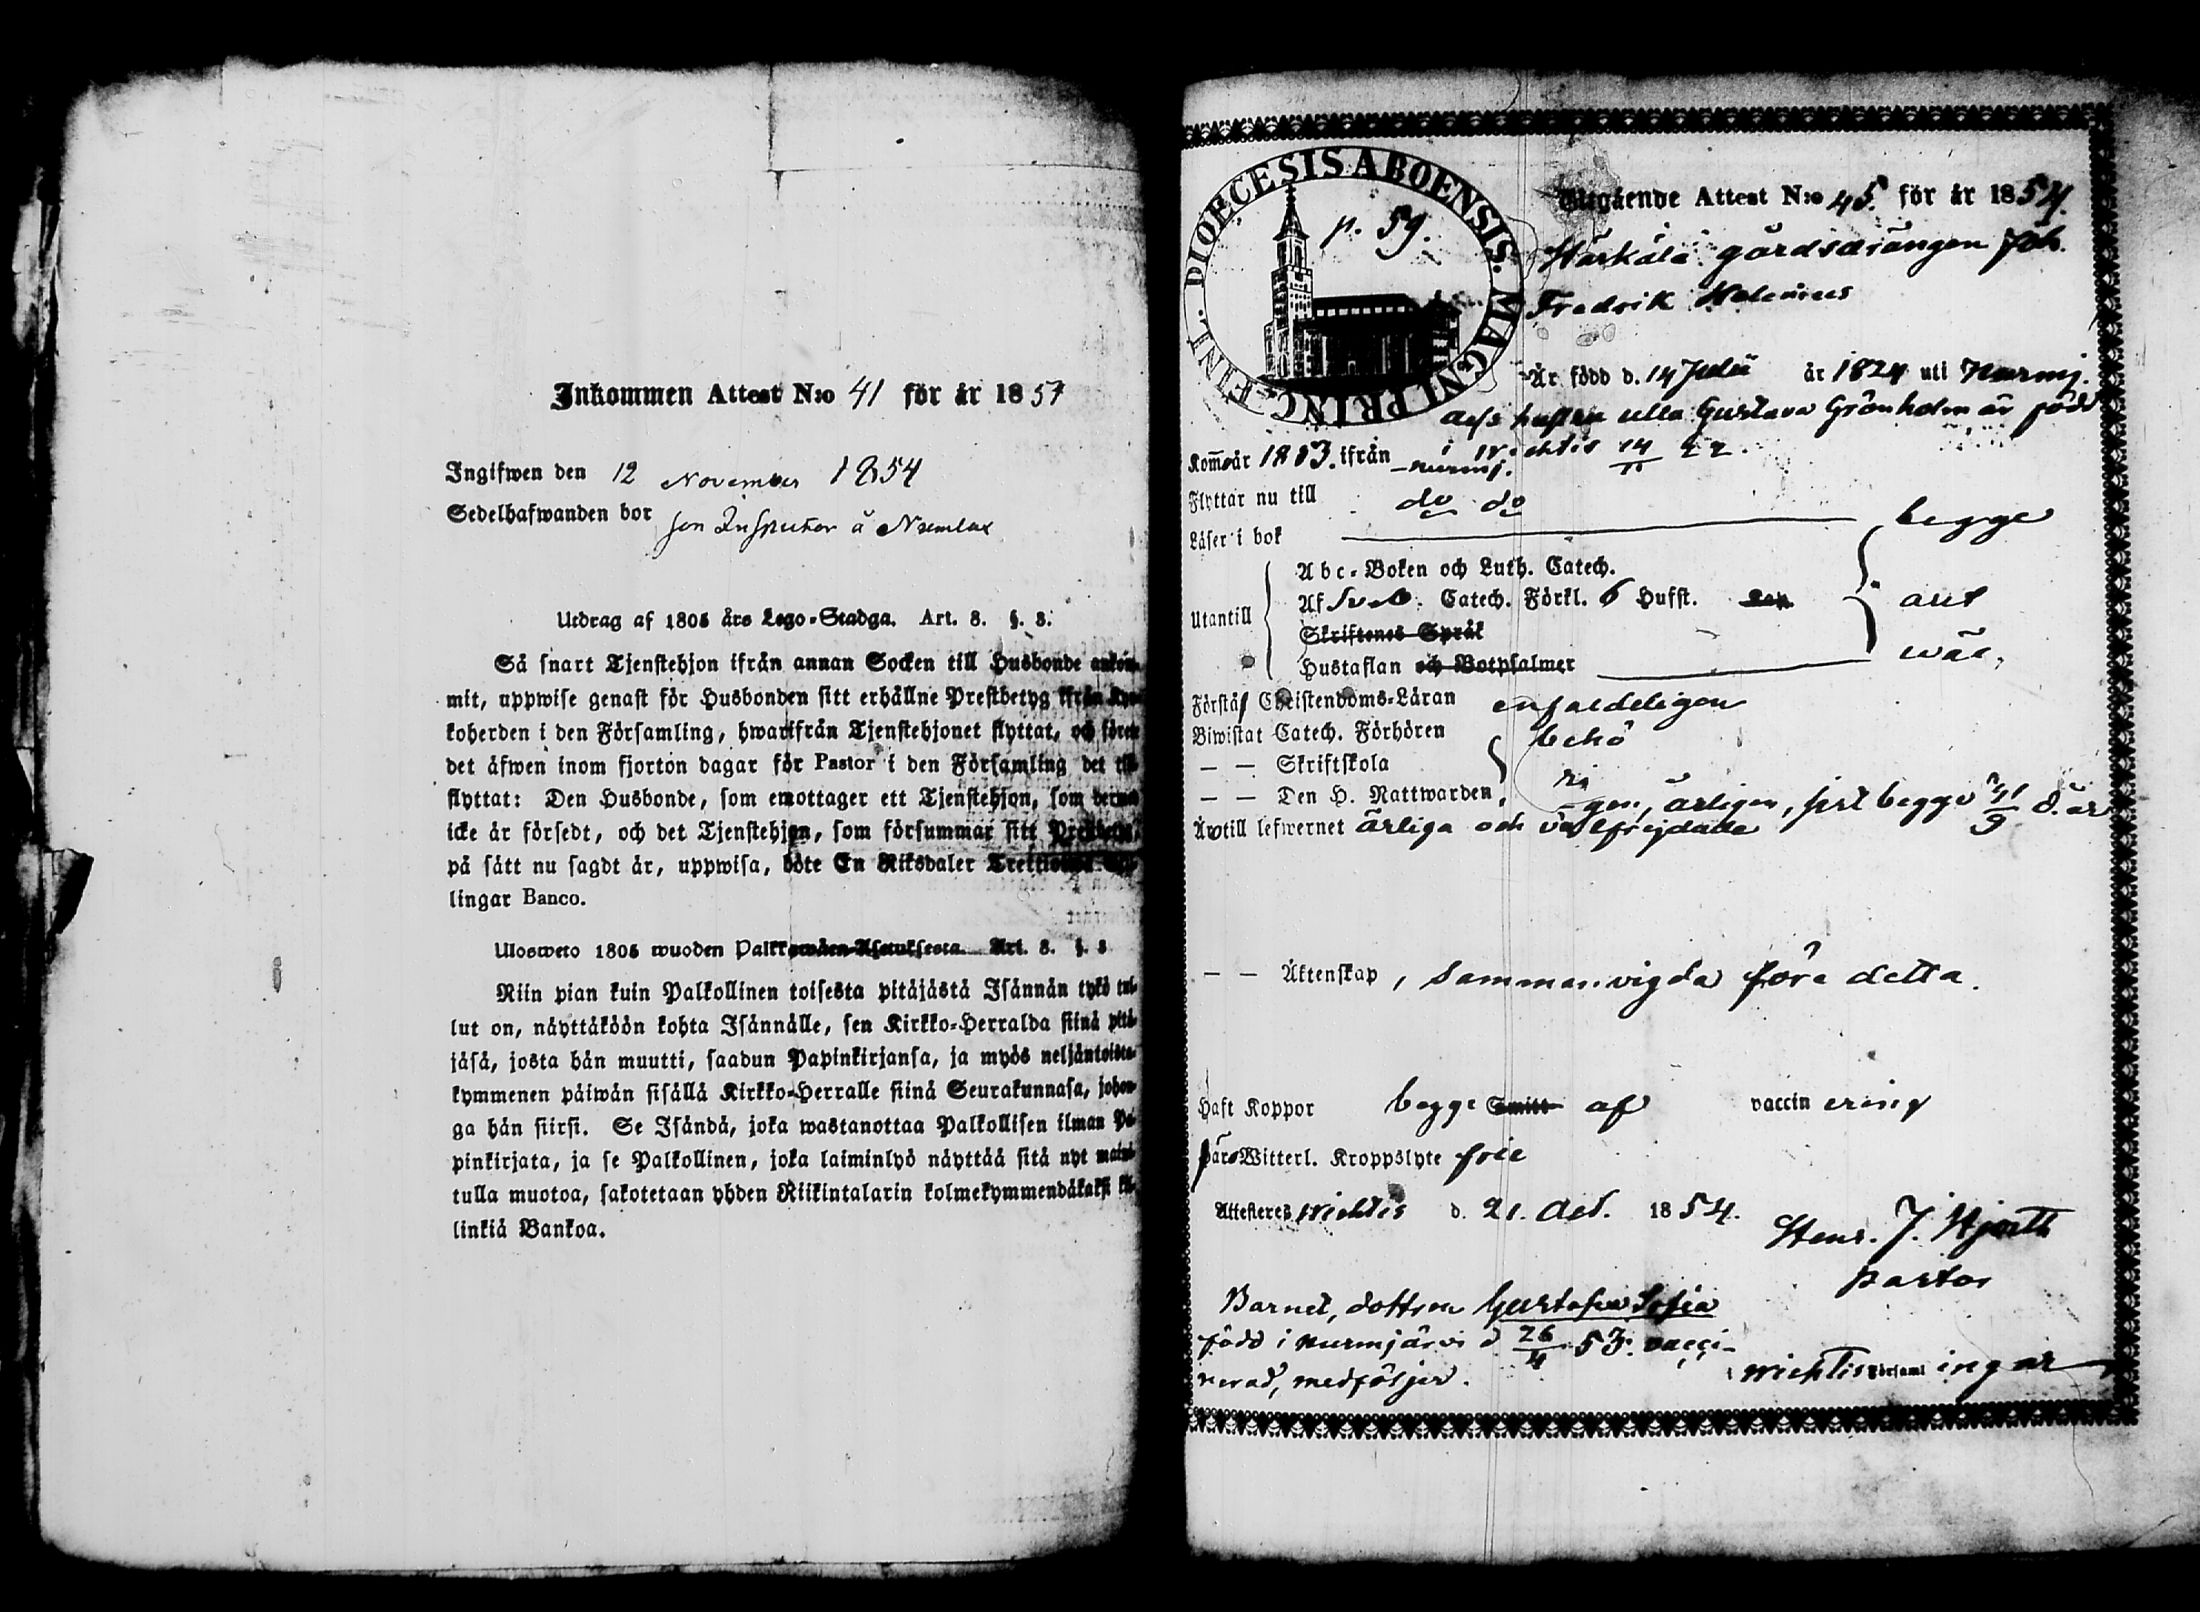 Inkommen Attest N:o 41 för år 1854
Ingifwen den 12 November 1854
Sedelhafwanden bor som Inspector å Numlax
Utdrag af 1805 års Lego-Stadga. Art. 8. §. 8.
Så snart Tjenstehjon ifrån annan Socken till Husbonde ankom-
mit, uppwise genast för Husbonden sitt erhållne Prestbetyg ifrån Kyr-
koherden i den Församling, hwarifrån Tjenstehjonet flyttat, och förete
det äfwen inom fjorton dagar för Pastor i den Församling det till-
flyttat: Den Husbonde, som emottager ett Tjenstehjon, som dermed
icke är försedt, och det Tjenstehjon, som försummar sitt Prestbetyg,
på sätt nu sagdt är, uppwisa, böte En Riksdaler Trettiotwå Skil-
lingar Banco.
Ulosweto 1805 wuoden Palkkawäen-Asetuksesta. Art. 8. §. 8
Niin pian kuin Palkollinen toisesta pitäjästä Isännän tykö tul-
lut on, näyttäköön kohta Isännälle, sen Kirkko-Herralda siinä pitä-
jäsä, josta hän muutti, saadun Papinkirjansa, ja myös neljäntoista-
kymmenen päiwän sisällä Kirkko-Herralle siinä Seurakunnasa, johon-
ga hän siirsi. Se Isändä, joka wastanottaa Palkollisen ilman Pa-
pinkirjata, ja se Palkollinen, joka laiminlyö näyttää sitä nyt maini-
tulla muotoa, sakotetaan yhden Riikintalarin kolmekymmendäkaksi kil-
linkiä Bankoa.
DIOECESIS ABOENSIS. MAGNI PRINC. FINL.
p. 59.
Utgående Attest N:o 45. för år 1854.
Härkälä gårdsdrängen Joh.
Fredrik Helenius
Är född d. 14 Julii år 1824 uti Nurmj.
dess hustru Ulla Gustava Grönholm är född
i Wichtis 14/11 22.
Kom̄ år 1853. ifrån Nurmj.
Flyttar nu till do do
Läser i bok begge
Utantill Abc-Boken och Luth. Catech.
Af Sveb. Catech. Förkl. 6 Hufst. ant
Skriftenes Språk
Hustaflan och Botpsalmer wäl,
Förstå Christendoms-Läran enfaldeligen
Biwistat Catech. Förhören behö
— — Skriftskola ri
— — Den H. Nattwarden, gen, ärligen, sist begge 21/9 d. år
Äro till lefwernet ärliga och välfrejdade
— — Äktenskap, sammanvigda före detta.
Haft Koppor begge Smitt af vaccinering
äro Witterl. Kroppslyte frie
Attesteres Wichtis d. 21. Oct. 1854.
Henr. J. Hjorth
pastor
Barnet, dottren Gustafva Sofia
född i Nurmijärvi d 26/4 53. vacci-
nerad, medföljer.
i Wichtis Församlingar